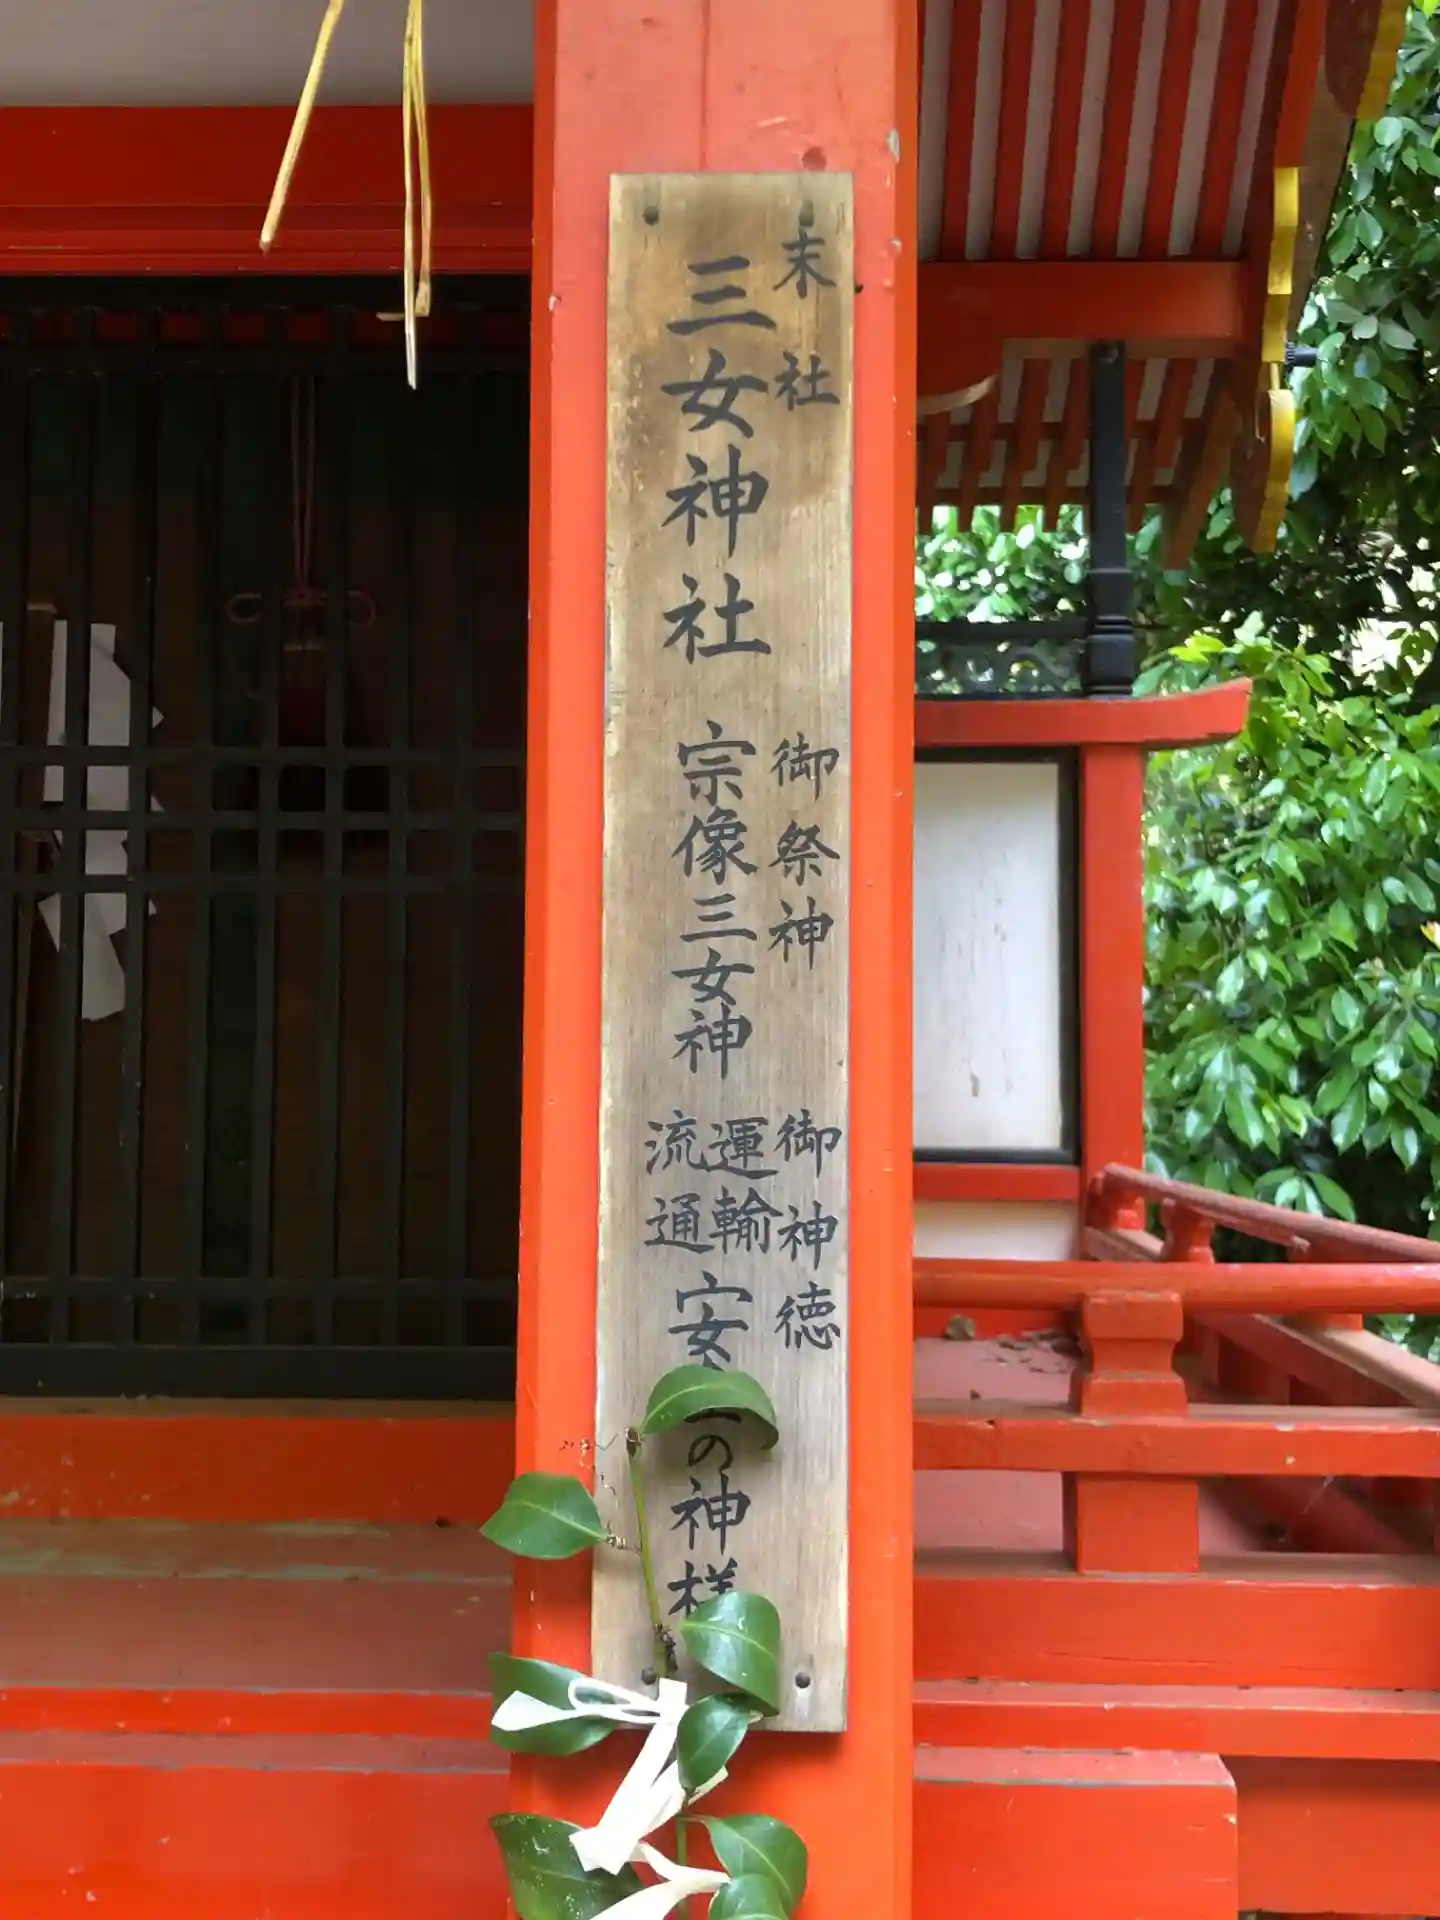 末社
三女神社
御祭神
宗像三女神
御神徳
運輸
流通
安
の神様